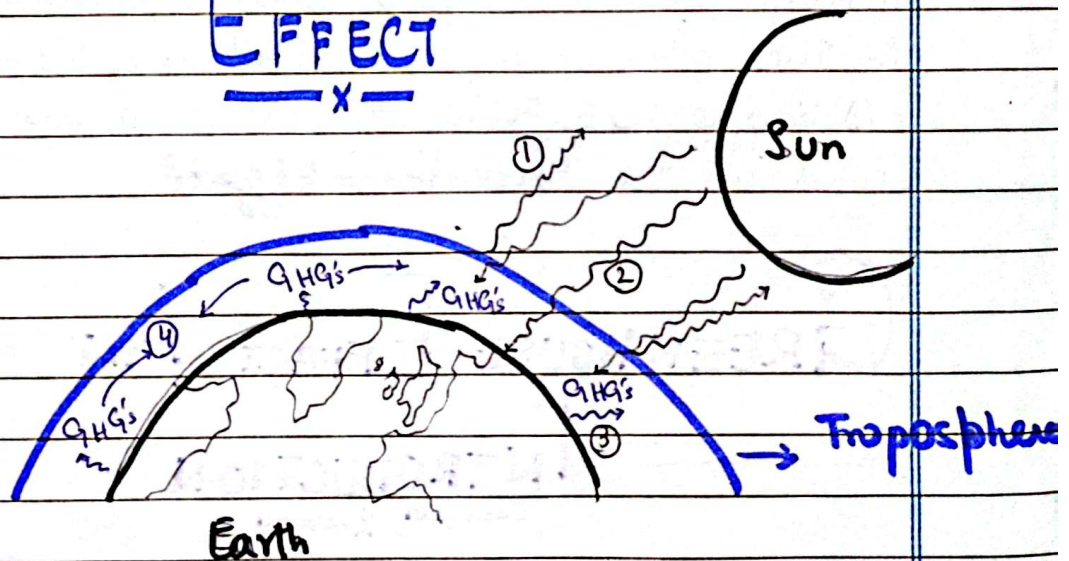 EFFECT
x
Sun
①
②
GHG's
GHG's
④
GHG's
GHG's
③
Troposphere
Earth